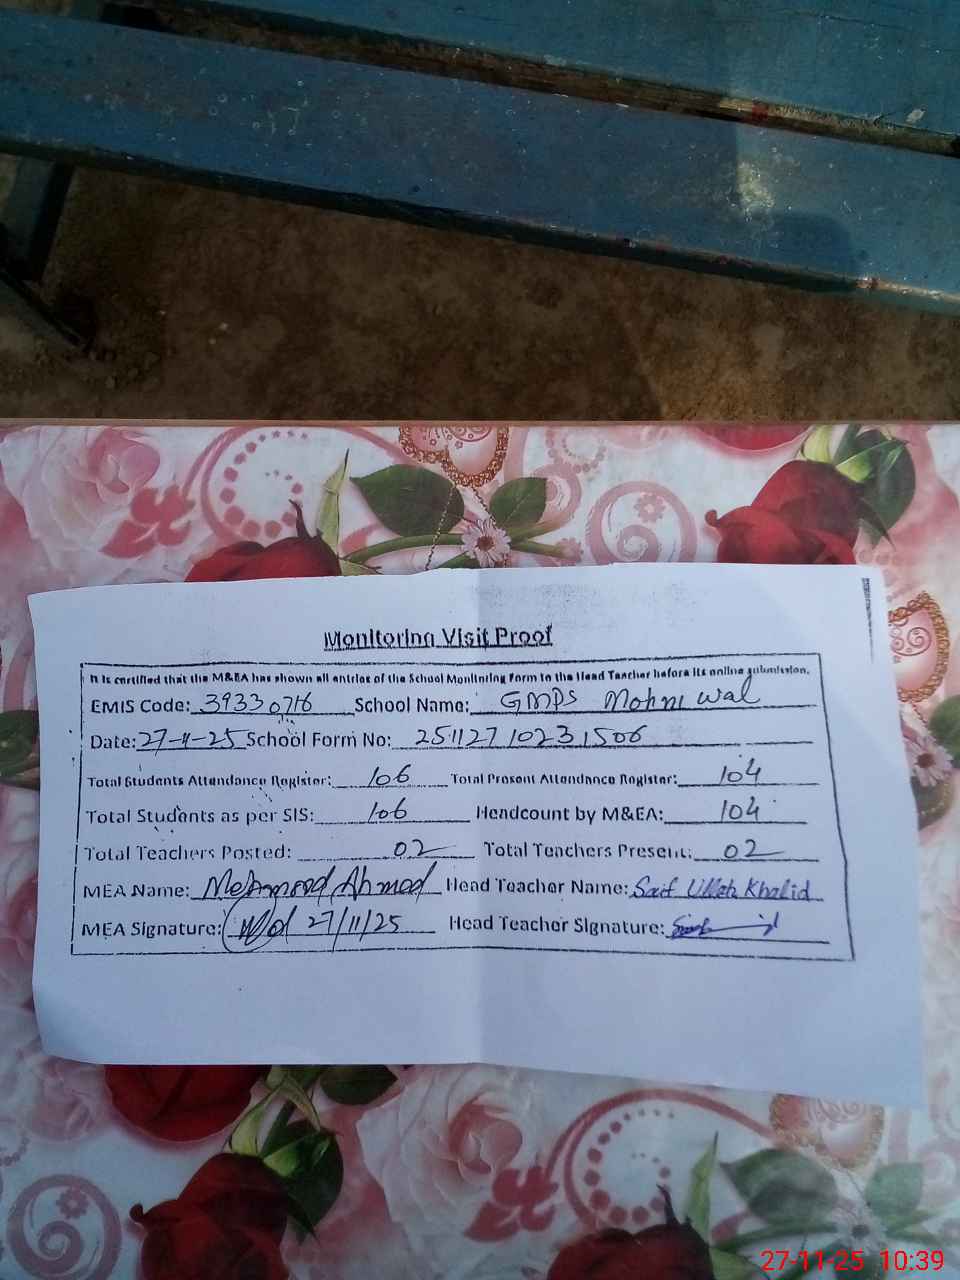 Monitoring Visit Proof
It is certified that the M&EA has shown all entries of the School Monitoring Form to the Head Teacher before its online submission.
EMIS Code: 39330716 School Name: GMPS Mohni wal
Date: 27-11-25 School Form No: 25112710231506
Total Students Attendance Register: 106 Total Present Attendance Register: 104
Total Students as per SIS: 106 Headcount by M&EA: 104
Total Teachers Posted: 02 Total Teachers Present: 02
MEA Name: Ahmed Head Teacher Name: Saif Ullah Khalid
MEA Signature: 27/11/25 Head Teacher Signature:
27-11-25 10:39